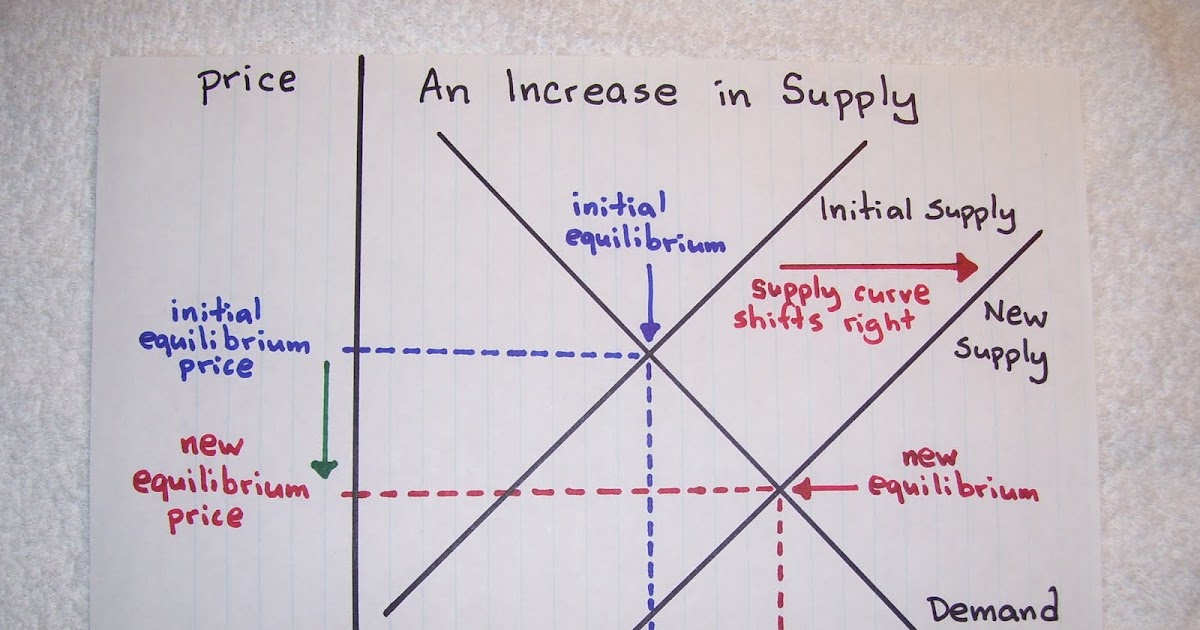 price
An Increase in Supply
initial
equilibrium
Initial Supply
supply curve
shifts right
New
Supply
initial
equilibrium
price
new
equilibrium
price
new
equilibrium
Demand